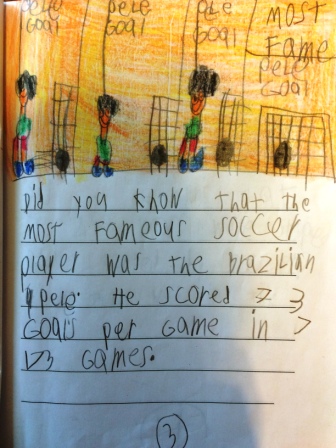 pele pele pele most
Goal Goal Goal Fame
Pele
Goal
Did you know that the
most fameous soccer
player was the brazilian
pele. He scored 3
Goals per Game in
173 Games.
3